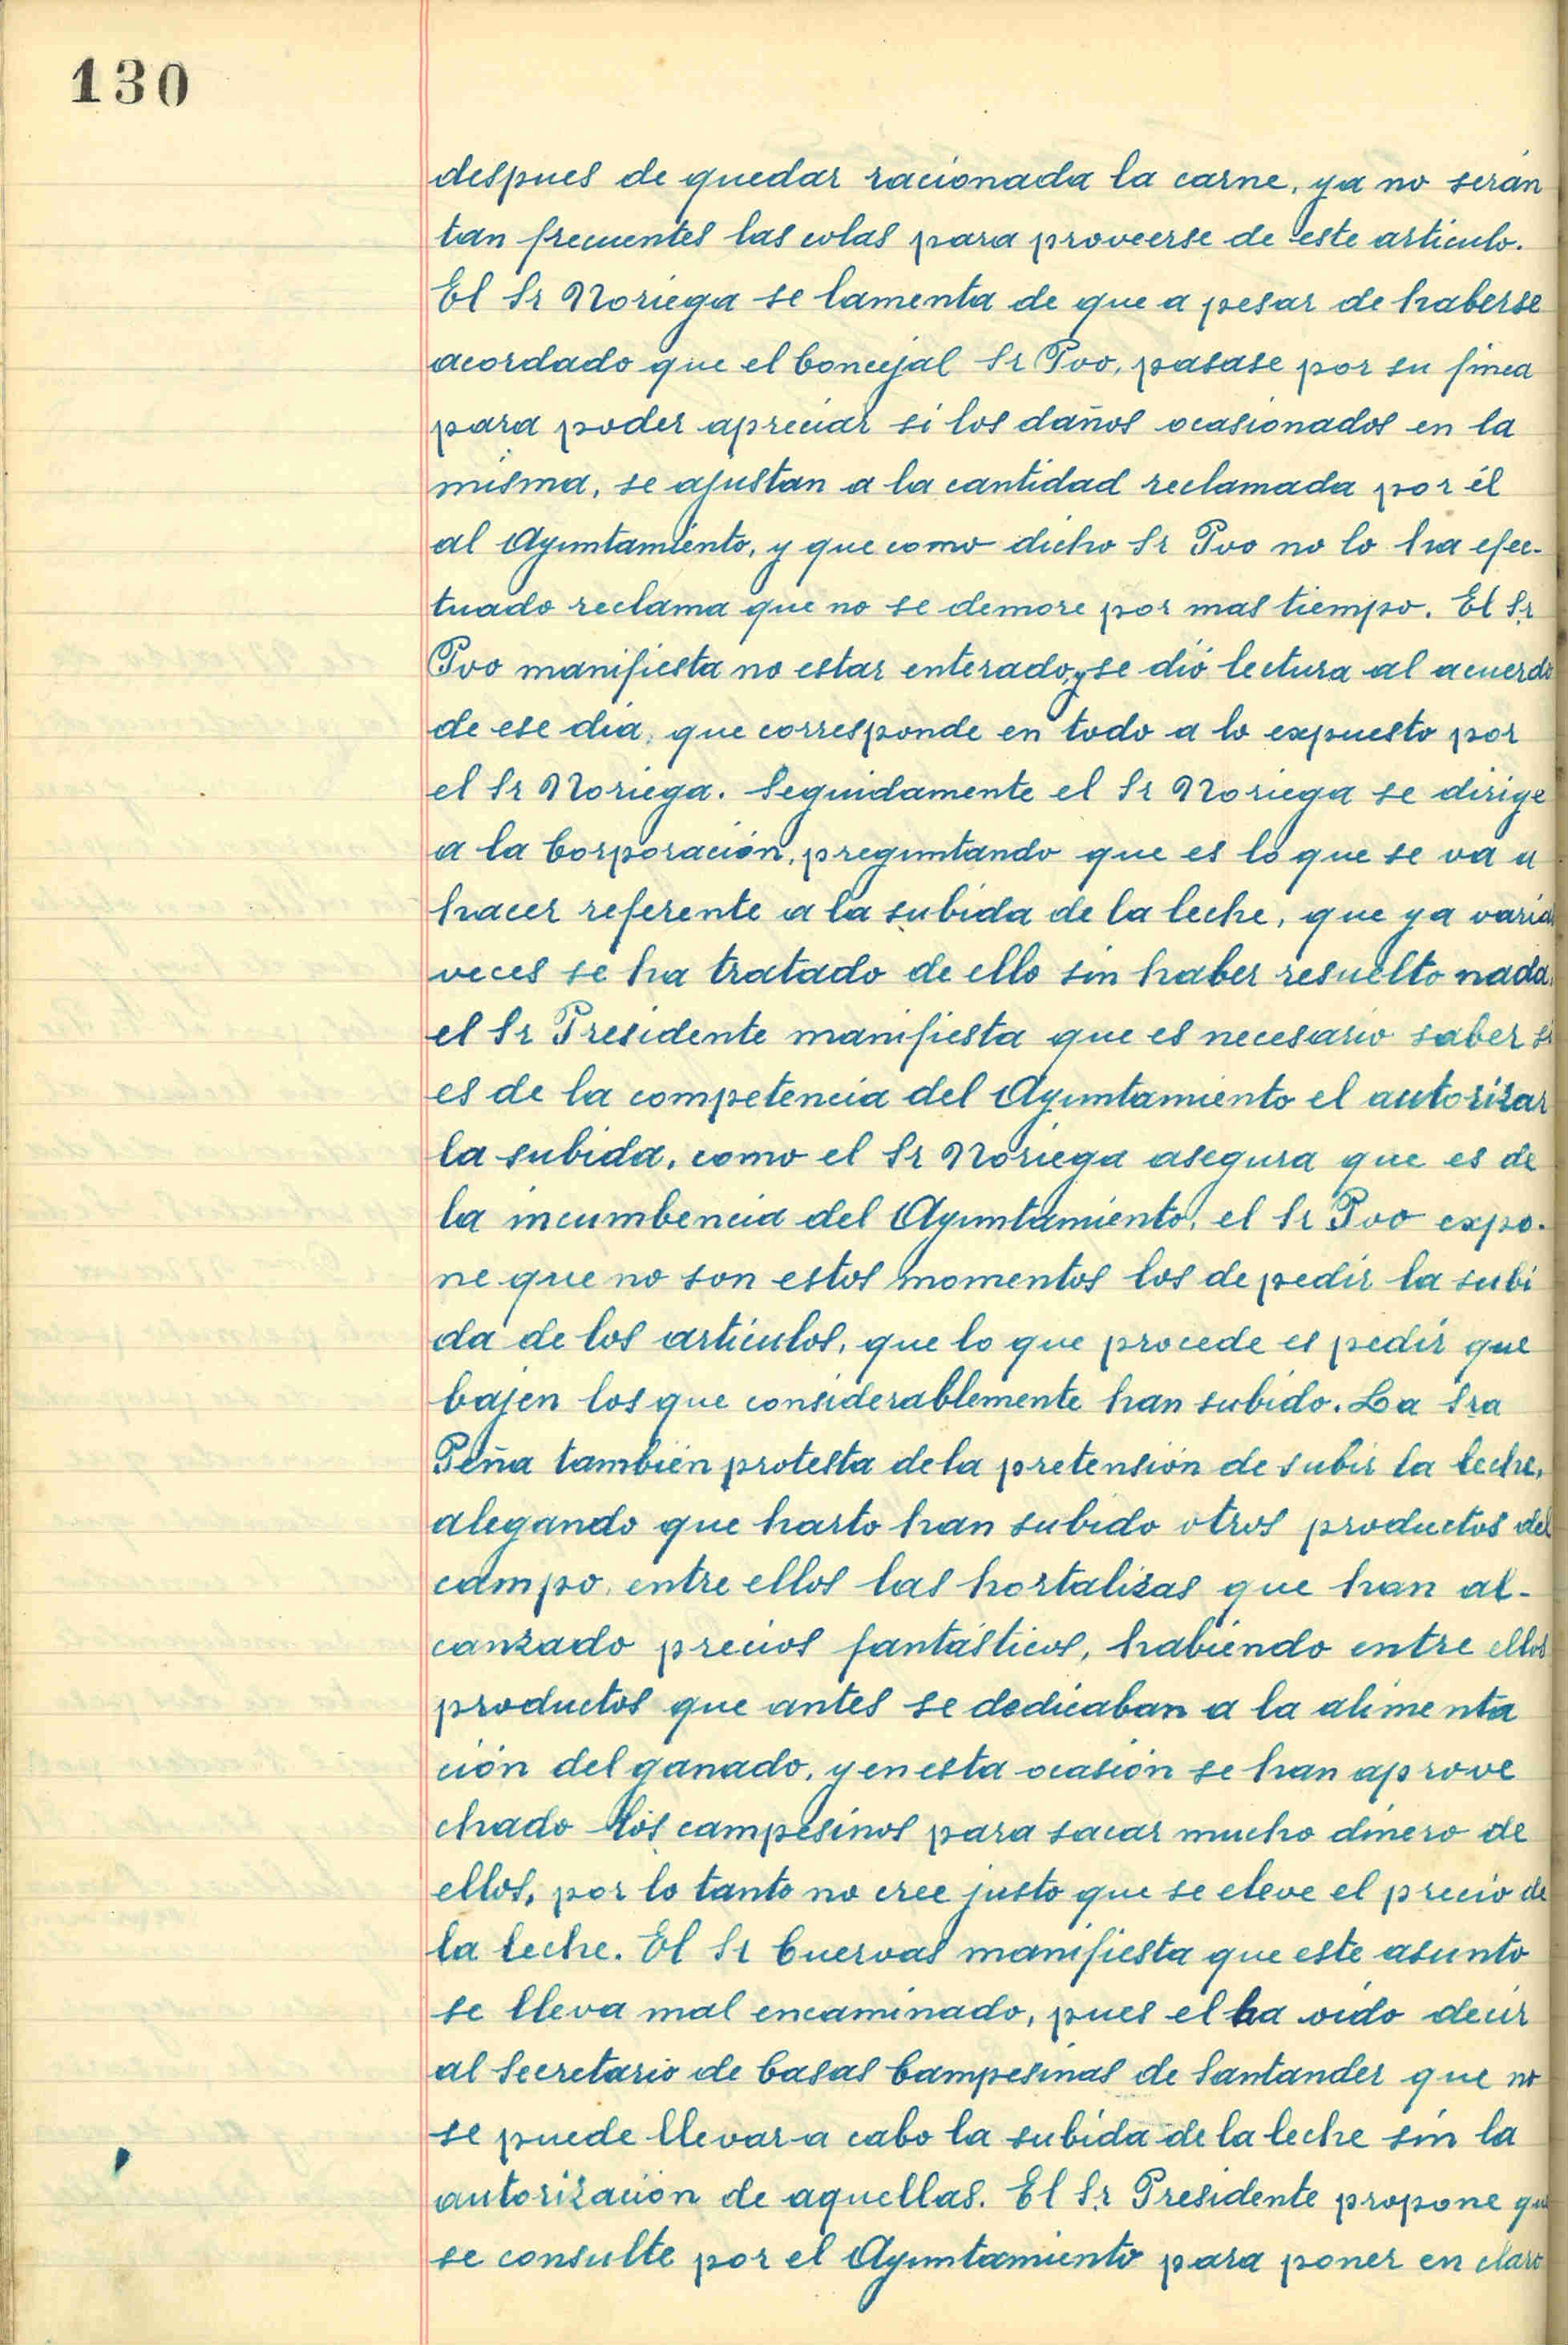 130
despues de quedar racionada la carne, ya no serán
tan frecuentes las colas para proveerse de este articulo.
El Sr Noriega se lamenta de que a pesar de haberse
acordado que el Concejal Sr Poo, pasase por su finca
para poder apreciar si los daños ocasionados en la
misma, se ajustan a la cantidad reclamada por él
al Ayuntamiento, y que como dicho Sr Poo no lo ha efec-
tuado reclama que no se demore por mas tiempo. El Sr
Poo manifiesta no estar enterado, y se dió lectura al acuerdo
de ese dia, que corresponde en todo a lo expuesto por
el Sr Noriega. Seguidamente el Sr Noriega se dirige
a la Corporación, preguntando que es lo que se va a
hacer referente a la subida de la leche, que ya varias
veces se ha tratado de ello sin haber resuelto nada,
el Sr Presidente manifiesta que es necesario saber si
es de la competencia del Ayuntamiento el autorizar
la subida, como el Sr Noriega asegura que es de
la incumbencia del Ayuntamiento, el Sr Poo expo-
ne que no son estos momentos los de pedir la subi
da de los articulos, que lo que procede es pedir que
bajen los que considerablemente han subido. La Sra
Peña también protesta de la pretensión de subir la leche,
alegando que harto han subido otros productos del
campo, entre ellos las hortalizas que han al-
canzado precios fantásticos, habiendo entre ellos
productos que antes se dedicaban a la alimenta
ción del ganado, y en esta ocasión se han aprove
chado los campesinos para sacar mucho dinero de
ellos, por lo tanto no cree justo que se eleve el precio de
la leche. El Sr Cuervas manifiesta que este asunto
se lleva mal encaminado, pues el ha oido decir
al Secretario de Casas Campesinas de Santander que no
se puede llevar a cabo la subida de la leche sin la
autorización de aquellas. El Sr Presidente propone que
se consulte por el Ayuntamiento para poner en claro